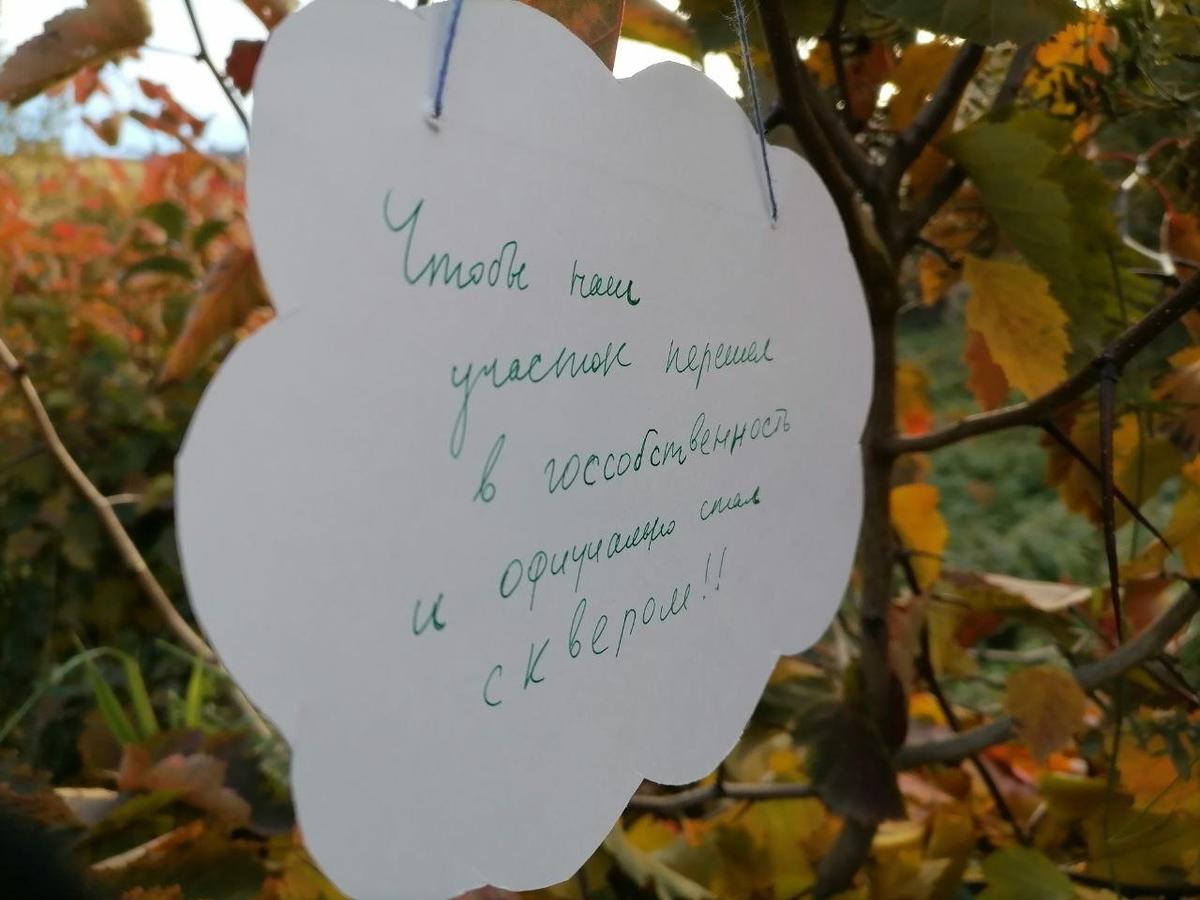 Чтобы наш
участок перешел
в гособственность
и официально стал
сквером!!